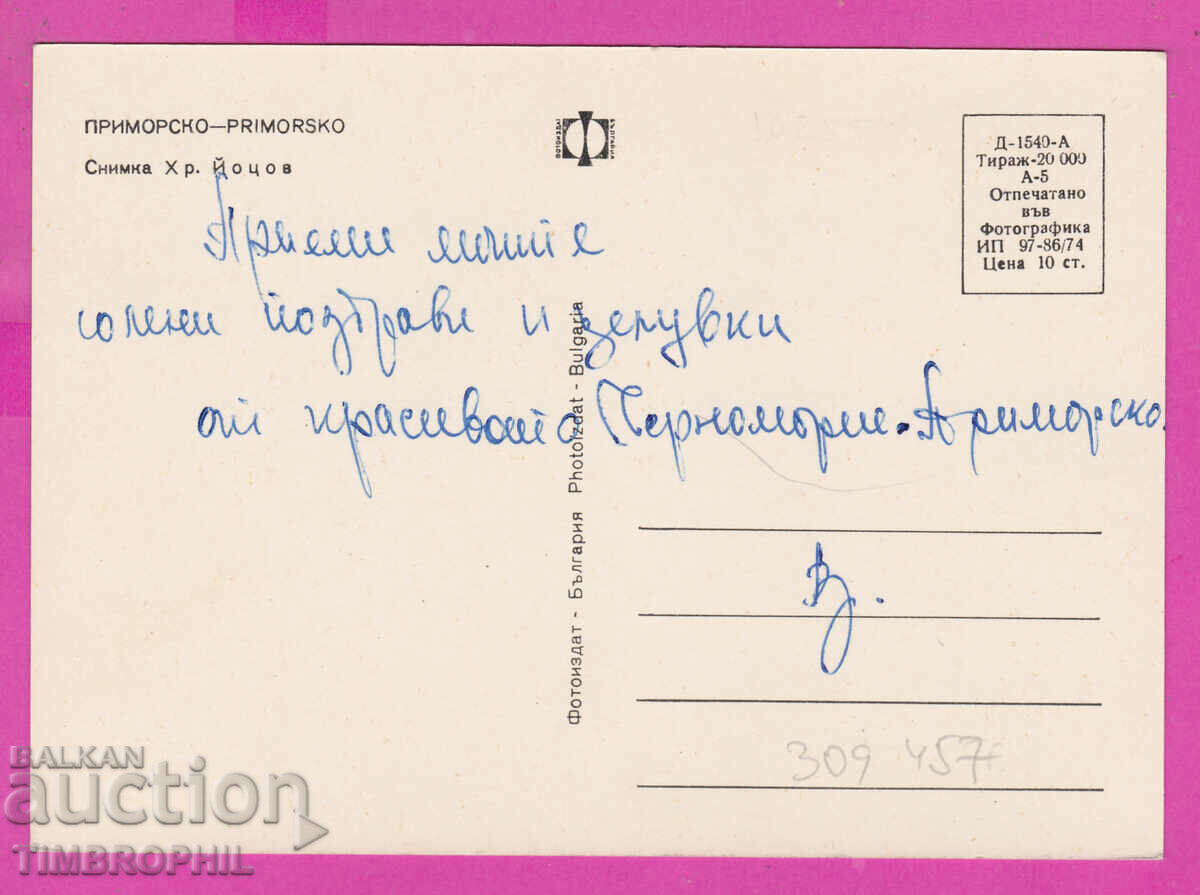 ПРИМОРСКО—PRIMORSKO
Снимка Хр. Йоцов
ФОТОИЗДАТ
БЪЛГАРИЯ
Д-1540-А
Тираж-20 000
А-5
Отпечатано
във
Фотографика
ИП 97-86/74
Цена 10 ст.
Приеми моите
солени поздрави и целувки
от красивото Черноморие - Приморско.
В.
Фотоиздат - България Photoizdat - Bulgaria
309 457
BALKAN
auction
TIMBROPHIL